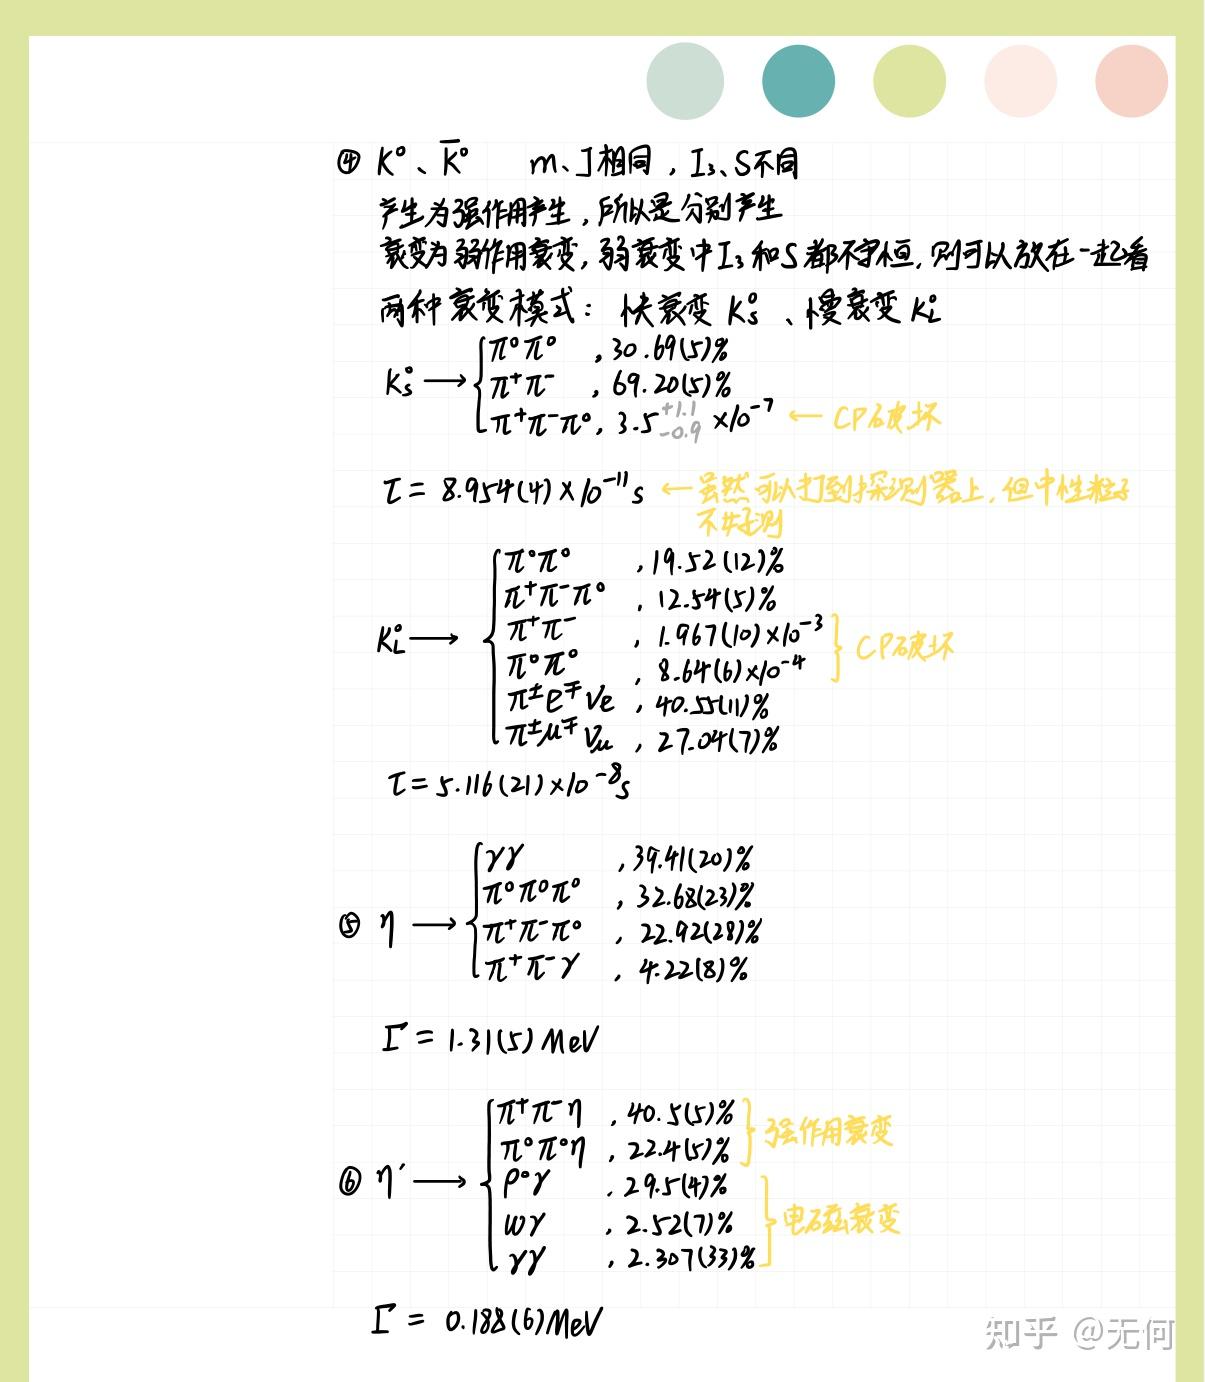 ④ K⁰、K̅⁰ m、J相同，I₃、S不同
产生为强作用产生，所以是分别产生
衰变为弱作用衰变，弱衰变中I₃和S都不守恒，则可以放在一起看
两种衰变模式：快衰变 K⁰s、慢衰变 K⁰L
K⁰s → { π⁰π⁰ , 30.69(5)%
π⁺π⁻ , 69.20(5)%
π⁺π⁻π⁰, 3.5 +1.1 −0.9 ×10⁻⁷ ← CP破坏
τ = 8.954(4)×10⁻¹¹s ← 虽然可以打到探测器上，但中性粒子
不好测
K⁰L → { π⁰π⁰ , 19.52(12)%
π⁺π⁻π⁰ , 12.54(5)%
π⁺π⁻ , 1.967(10)×10⁻³ } CP破坏
π⁰π⁰ , 8.64(6)×10⁻⁴
π±e∓νe , 40.55(11)%
π±μ∓νμ , 27.04(7)%
τ = 5.116(21)×10⁻⁸s
⑤ η → { γγ , 39.41(20)%
π⁰π⁰π⁰ , 32.68(23)%
π⁺π⁻π⁰ , 22.92(28)%
π⁺π⁻γ , 4.22(8)%
Γ = 1.31(5) MeV
⑥ η′ → { π⁺π⁻η , 40.5(5)% } 强作用衰变
π⁰π⁰η , 22.4(5)%
ρ⁰γ , 29.5(4)% } 电磁衰变
ωγ , 2.52(7)%
γγ , 2.307(33)%
Γ = 0.188(6)MeV
知乎 @无何